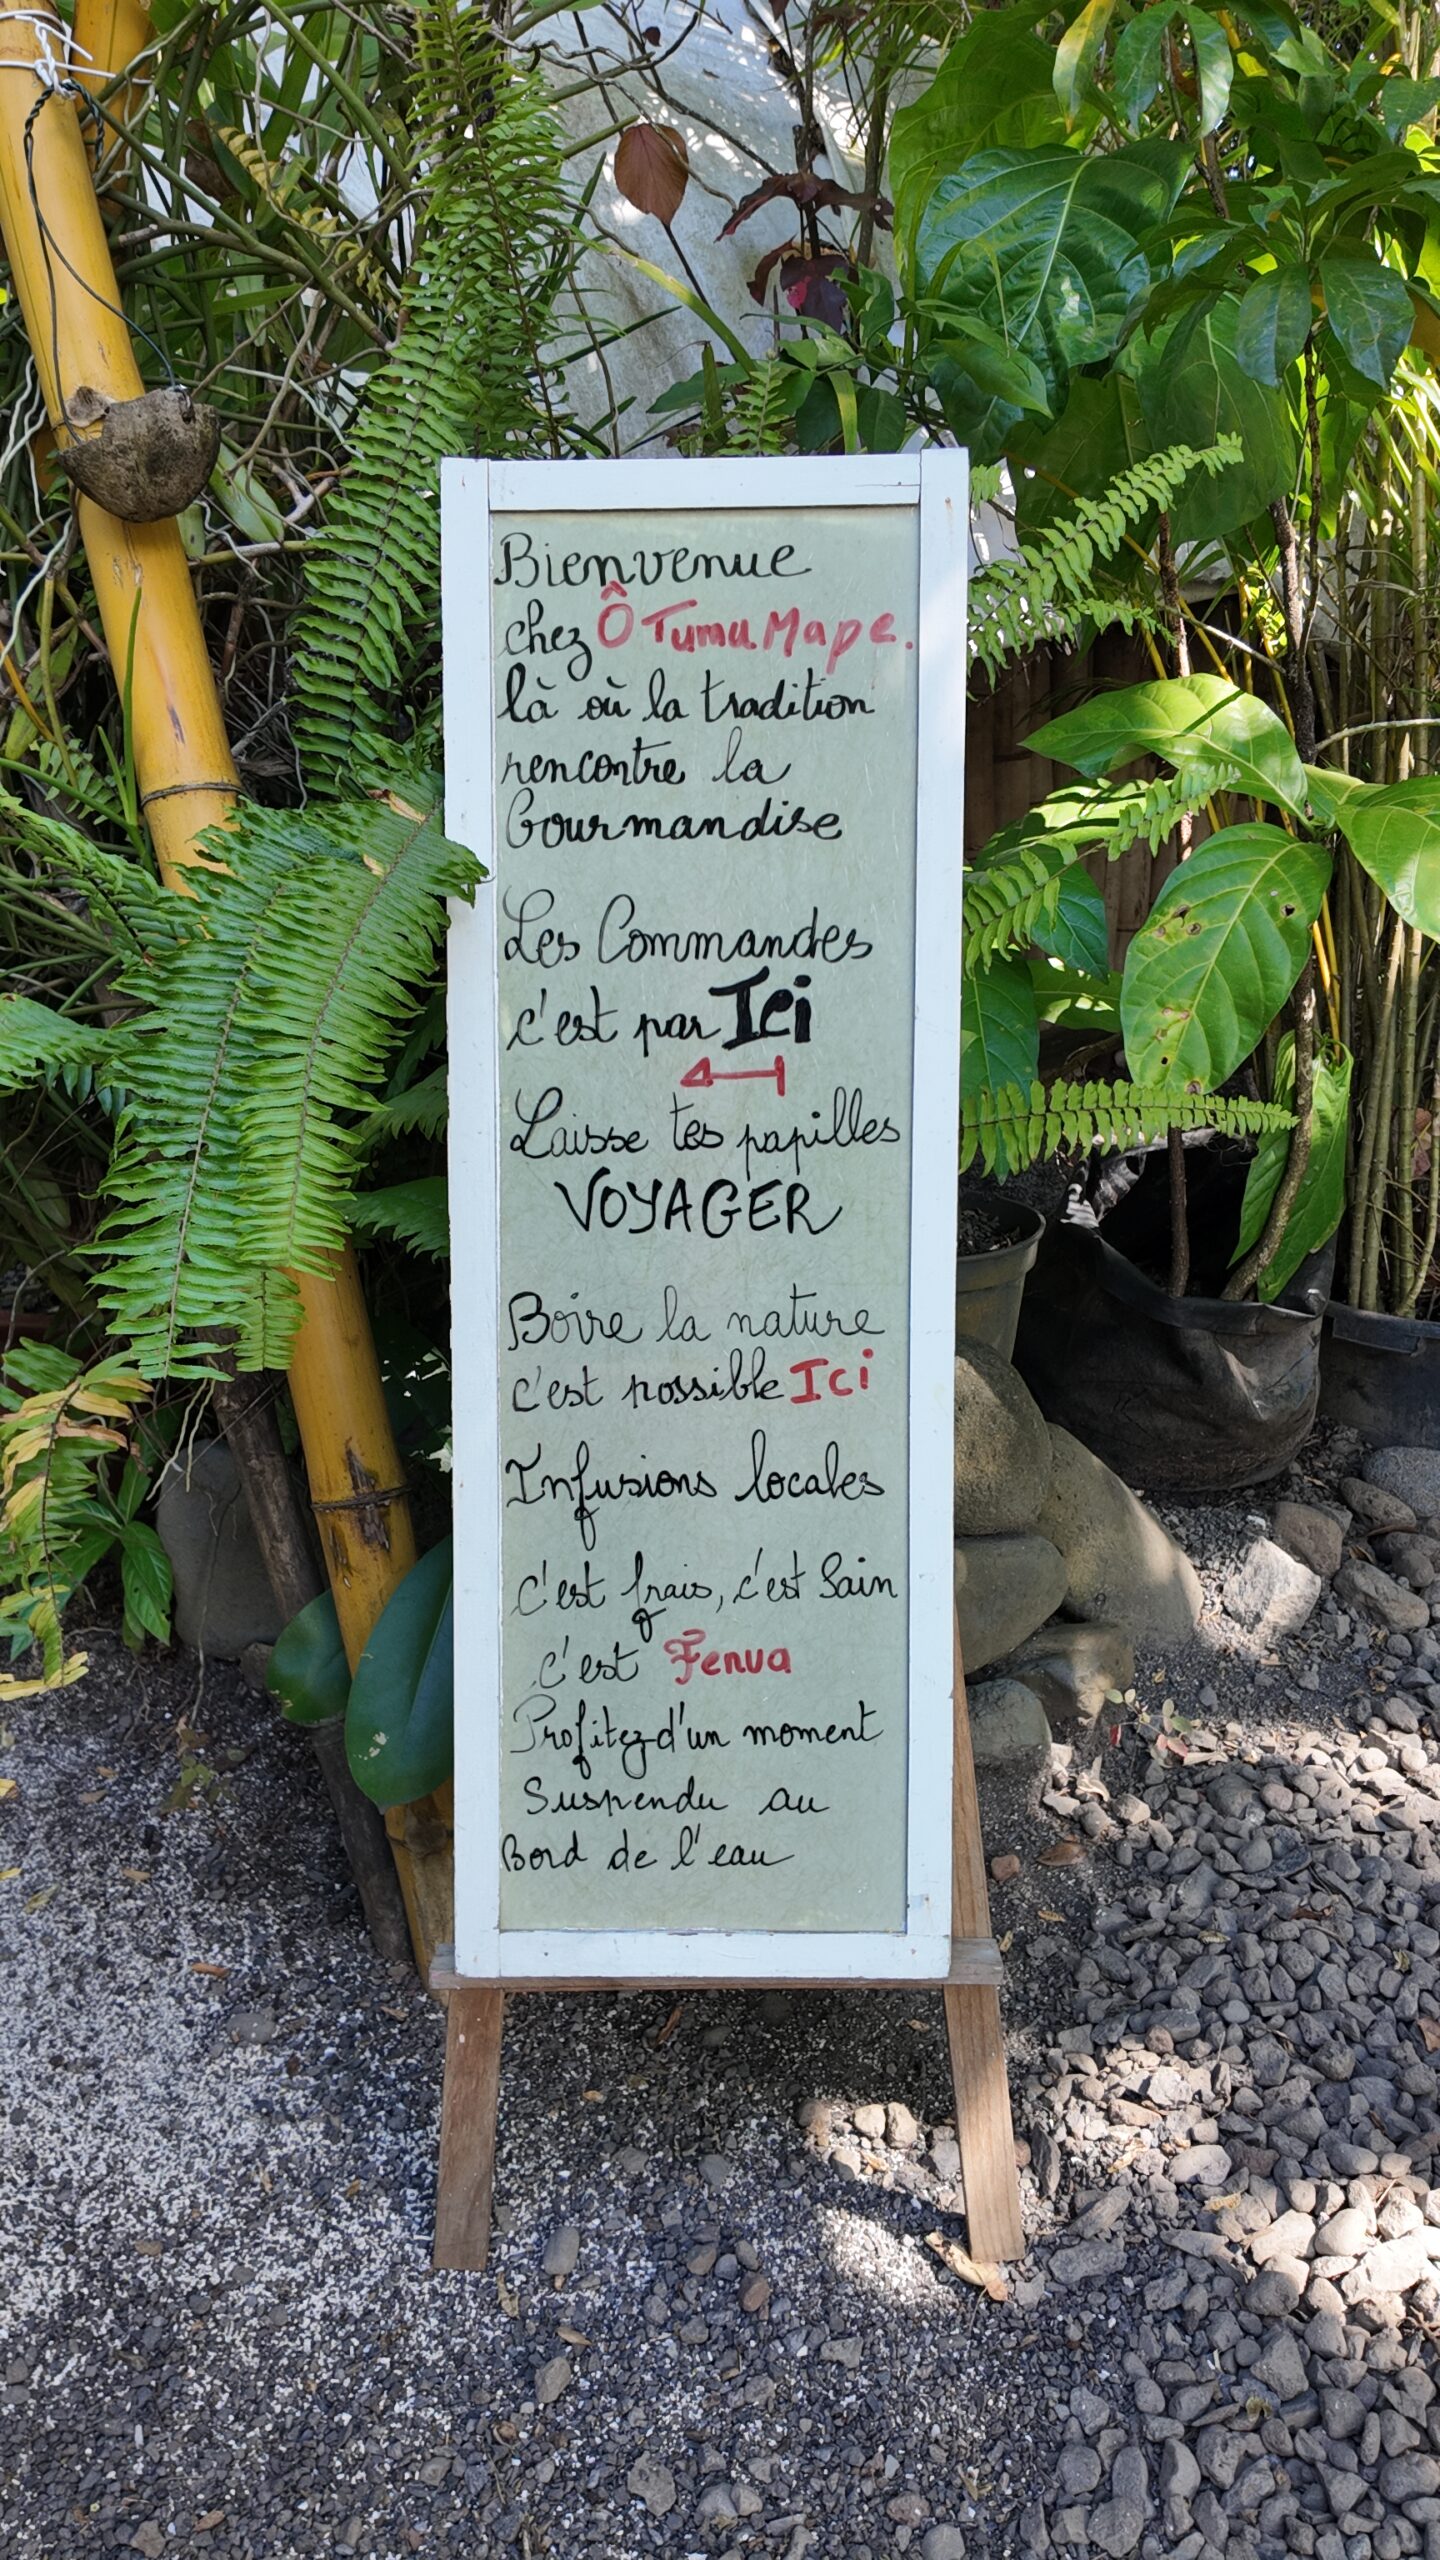 Bienvenue
chez Ô Tumu Mape.
là où la tradition
rencontre la
Gourmandise
Les Commandes
c'est par Ici
Laisse tes papilles
VOYAGER
Boire la nature
c'est possible Ici
Infusions locales
c'est frais, c'est Sain
c'est Fenua
Profitez d'un moment
Suspendu au
Bord de l'eau